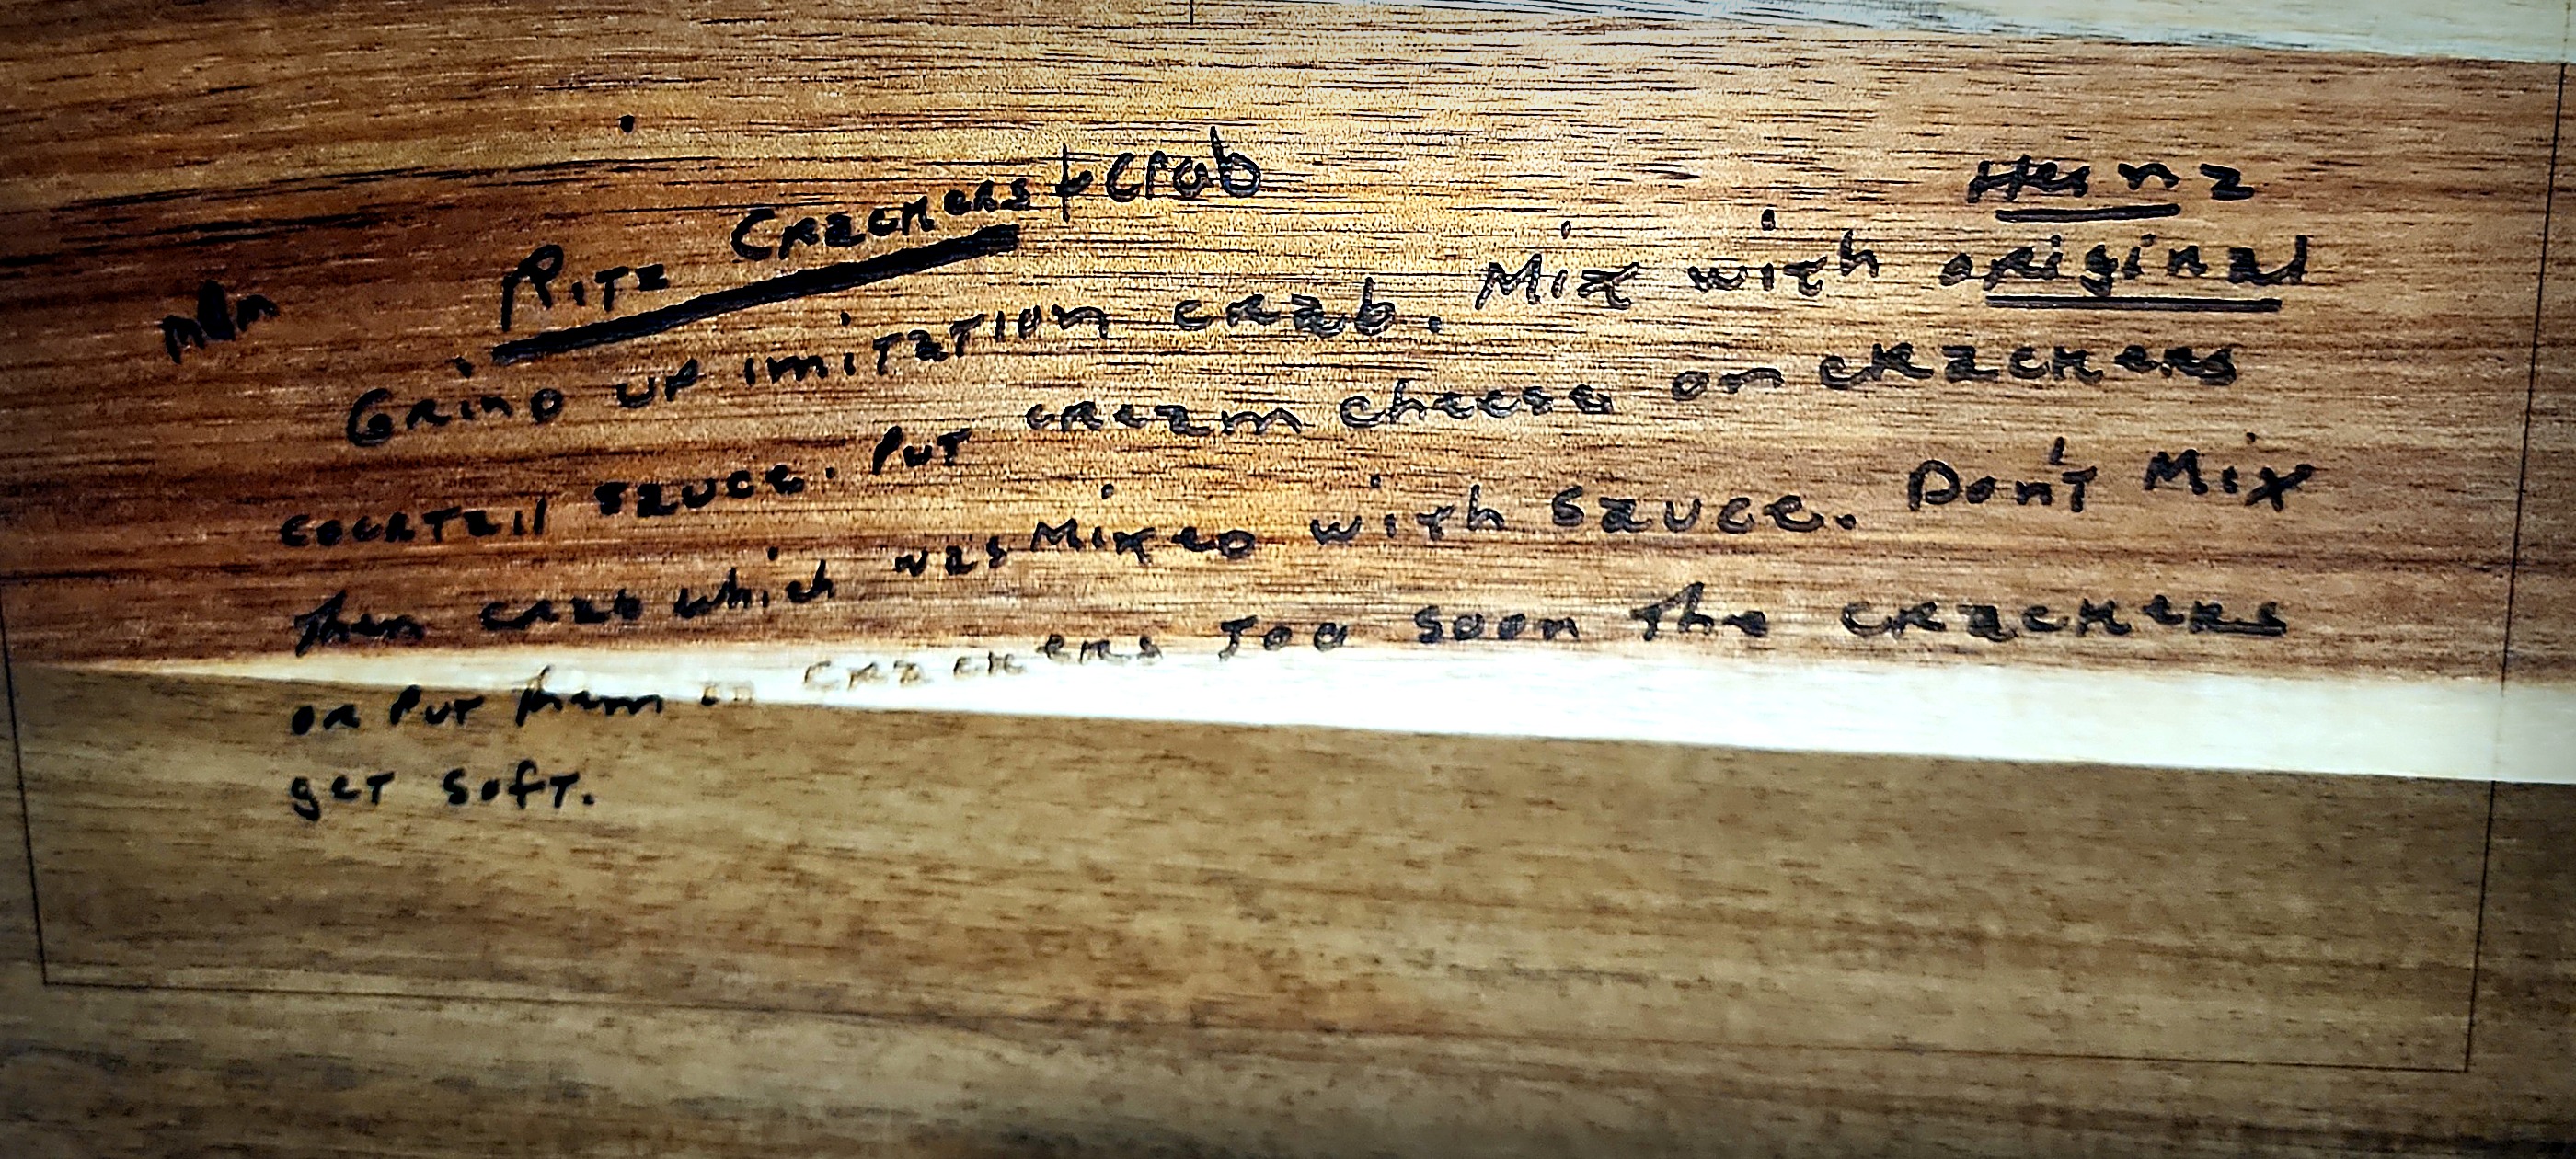 Heinz
Ritz Crackers + Crab
mom
Grind up imitation crab. Mix with original
cocktail sauce. Put cream cheese on crackers
then crab which was mixed with sauce. Don't Mix
or put them on crackers too soon the crackers
get soft.